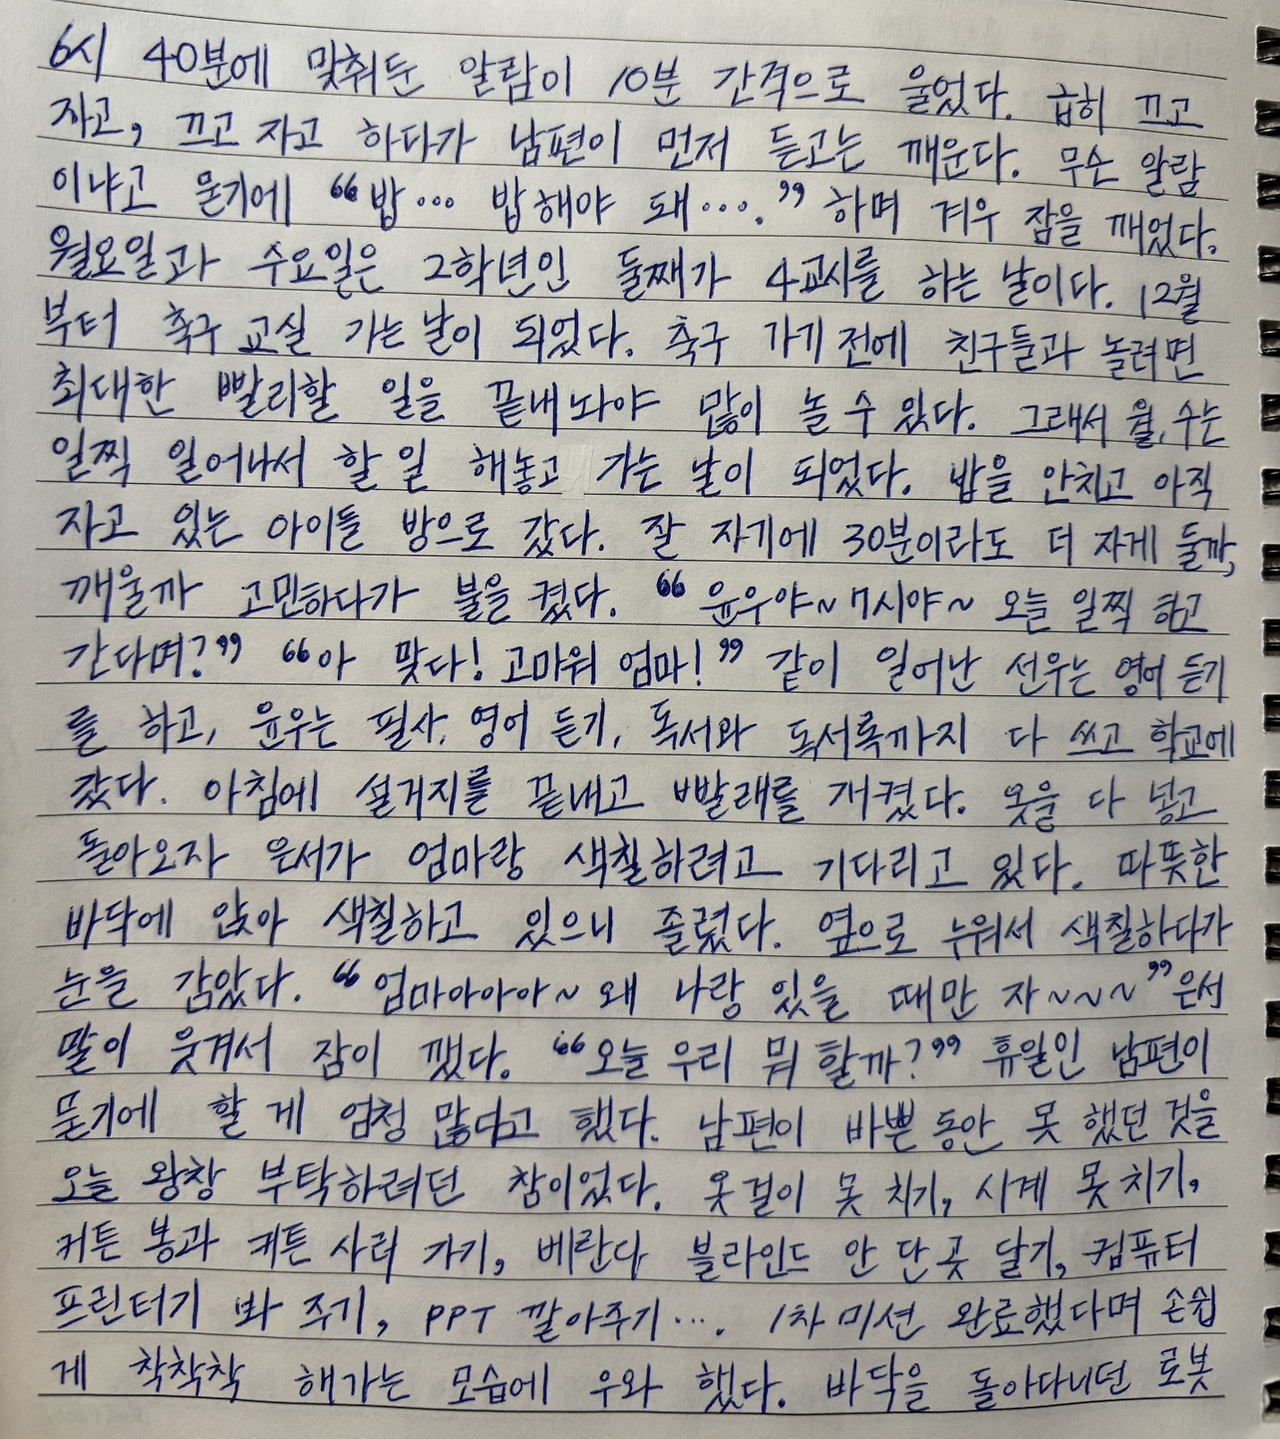 6시 40분에 맞춰둔 알람이 10분 간격으로 울었다. 급히 끄고
자고, 끄고 자고 하다가 남편이 먼저 듣고는 깨운다. 무슨 알람
이냐고 묻기에 “밥... 밥해야 돼....” 하며 겨우 잠을 깨었다.
월요일과 수요일은 2학년인 둘째가 4교시를 하는 날이다. 12월
부터 축구 교실 가는 날이 되었다. 축구 가기 전에 친구들과 놀려면
최대한 빨리할 일을 끝내놔야 많이 놀 수 있다. 그래서 월, 수는
일찍 일어나서 할 일 해놓고 가는 날이 되었다. 밥을 안치고 아직
자고 있는 아이들 방으로 갔다. 잘 자기에 30분이라도 더 자게 둘까,
깨울까 고민하다가 불을 켰다. “윤우야~ 7시야~ 오늘 일찍 하고
간다며?” “아 맞다! 고마워 엄마!” 같이 일어난 선우는 영어 듣기
를 하고, 윤우는 필사, 영어 듣기, 독서와 독서록까지 다 쓰고 학교에
갔다. 아침에 설거지를 끝내고 빨래를 개켰다. 옷을 다 넣고
돌아오자 은서가 엄마랑 색칠하려고 기다리고 있다. 따뜻한
바닥에 앉아 색칠하고 있으니 졸렸다. 옆으로 누워서 색칠하다가
눈을 감았다. “엄마아아아~ 왜 나랑 있을 때만 자~~~” 은서
말이 웃겨서 잠이 깼다. “오늘 우리 뭐 할까?” 휴일인 남편이
묻기에 할 게 엄청 많다고 했다. 남편이 바쁜 동안 못 했던 것을
오늘 왕창 부탁하려던 참이었다. 옷걸이 못 치기, 시계 못 치기,
커튼 봉과 커튼 사러 가기, 베란다 블라인드 안 단 곳 달기, 컴퓨터
프린터기 봐 주기, PPT 깔아주기.... 1차 미션 완료했다며 손쉽
게 착착착 해가는 모습에 우와 했다. 바닥을 돌아다니던 로봇